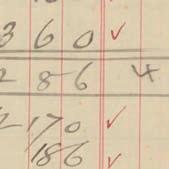 3 6 0 ✓
2 8 6 4
2 1 7 0 ✓
1 8 6 ✓